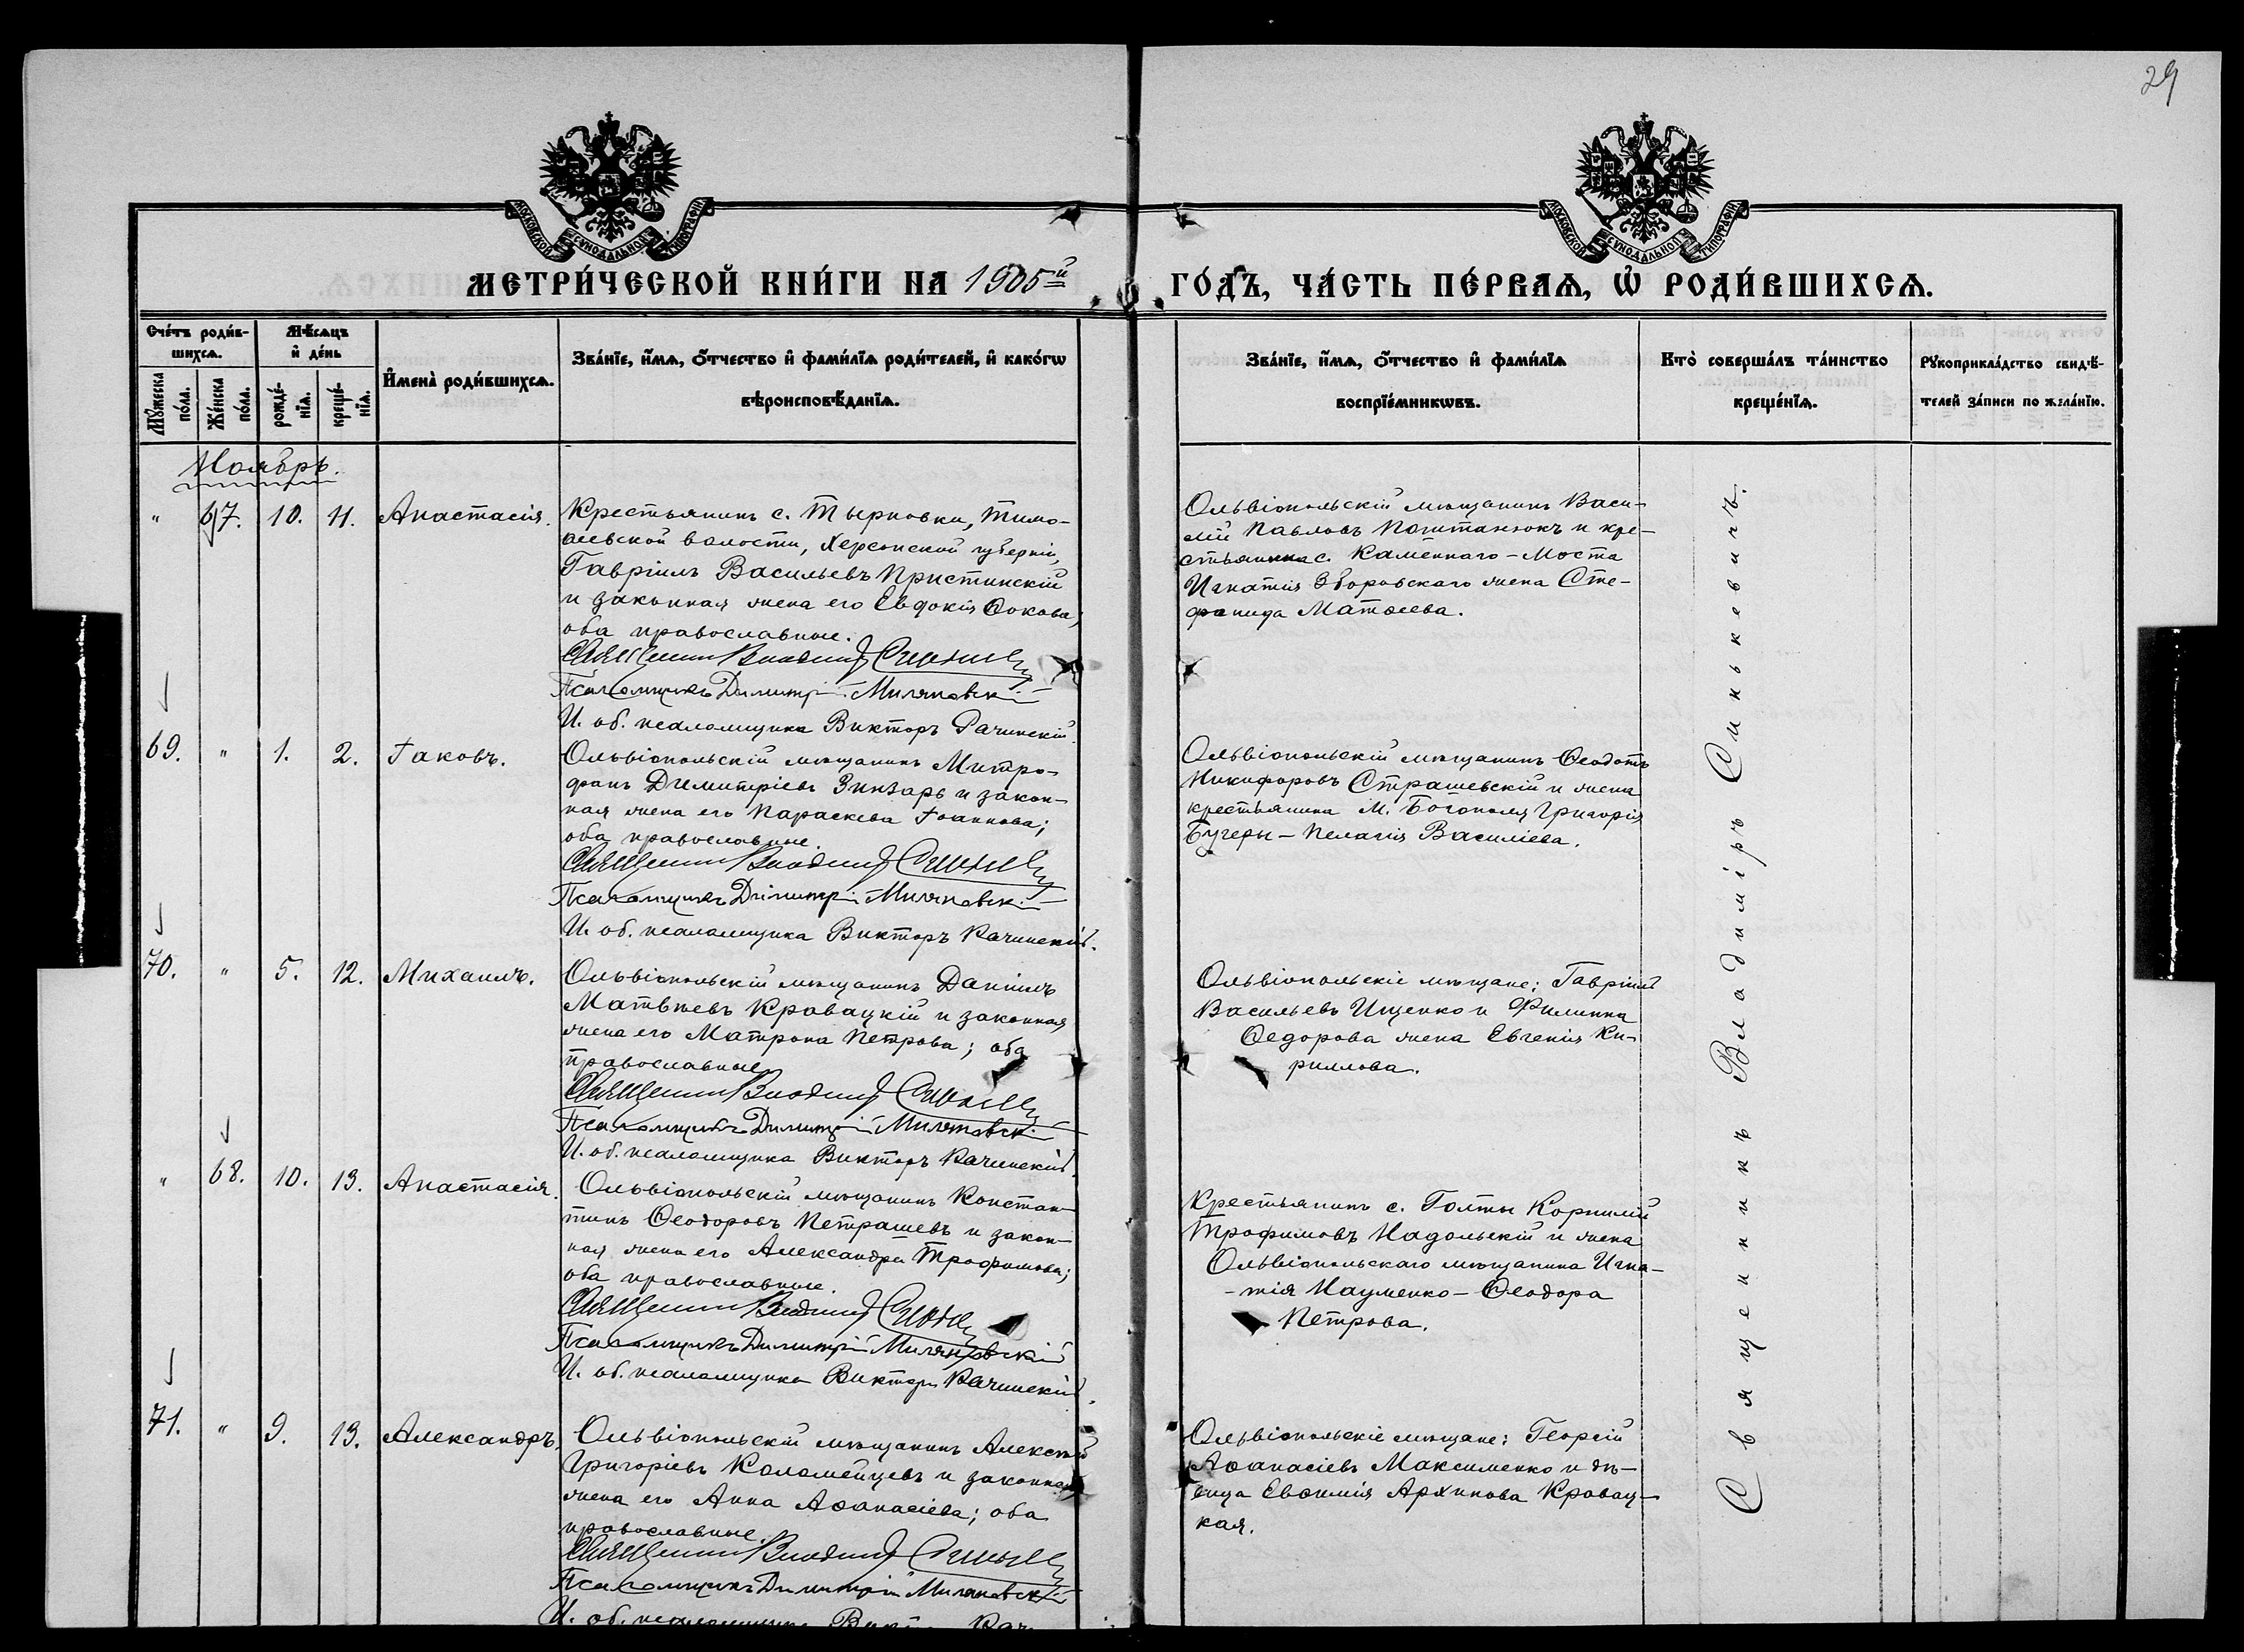 29
МОСКОВСКОЙ СѴНОДАЛЬНОЙ ТИПОГРАФІИ
МОСКОВСКОЙ СѴНОДАЛЬНОЙ ТИПОГРАФІИ
МЕТРИ́ЧЕСКОЙ КНИ́ГИ НА 1905й ГО́ДЪ, ЧА́СТЬ ПЕ́РВАѦ, Ѡ҆ РОДИ́ВШИХСѦ.
Сче́тъ роди́в-
шихсѧ.
Мѣ́сѧцъ
и҆ де́нь
Мꙋ́жеска
по́ла.
Же́нска
по́ла.
рожде́-
нїѧ.
креще́-
нїѧ.
И҆мена̀ роди́вшихсѧ.
Зва́нїе, и҆́мѧ, ѻ҆́тчество и҆ фами́лїѧ роди́телей, и҆ како́гѡ
вѣроисповѣ́данїѧ.
Зва́нїе, и҆́мѧ, ѻ҆́тчество и҆ фами́лїѧ
воспрїе́мникѡвъ.
Кто̀ соверша́лъ та́инство
креще́нїѧ.
Рꙋкоприкла́дство свидѣ́-
телей за́писи по жела́нїю.
Ноябрь.
" 67. 10. 11. Анастасія.
Крестьянинъ с. Тырновки, Тимо-
ѳеевской волости, Херсонской губерніи,
Гавріилъ Васильевъ Пристинскій
и законная жена его Евдокія Ѳокова;
оба православные.
Священникъ Владиміръ Синькевичъ
Псаломщикъ Димитрій Миляновскій
И. об. псаломщика Викторъ Рачинскій.
Ольвіопольскій мѣщанинъ Васи-
лій Павловъ Поштанюкъ и кре-
стьянина с. Каменнаго-Моста
Игнатія Зборовскаго жена Сте-
фанида Матѳеева.
69. " 1. 2. Іаковъ.
Ольвіопольскій мѣщанинъ Митро-
фанъ Димитріевъ Зинзарь и закон-
ная жена его Параскева Іоаннова;
оба православные.
Священникъ Владиміръ Синькевичъ
Псаломщикъ Димитрій Миляновскій
И. об. псаломщика Викторъ Рачинскій.
Ольвіопольскій мѣщанинъ Ѳеодотъ
Никифоровъ Страшевскій и жена
крестьянина М. Богополя Григорія
Бугеры - Пелагія Василіева.
70. " 5. 12. Михаилъ.
Ольвіопольскій мѣщанинъ Даніилъ
Матвѣевъ Кравацкій и законная
жена его Матрона Петрова; оба
православные.
Священникъ Владиміръ Синькевичъ
Псаломщикъ Димитрій Миляновскій
И. об. псаломщика Викторъ Рачинскій.
Ольвіопольскіе мѣщане: Гавріилъ
Васильевъ Ищенко и Филиппа
Ѳедорова жена Евгенія Ки-
риллова.
" 68. 10. 13. Анастасія.
Ольвіопольскій мѣщанинъ Констан-
тинъ Ѳеодоровъ Петрашевъ и закон-
ная жена его Александра Трофимова;
оба православные.
Священникъ Владиміръ Синькевичъ
Псаломщикъ Димитрій Миляновскій
И. об. псаломщика Викторъ Рачинскій.
Крестьянинъ с. Голты Корнилій
Трофимовъ Надольскій и жена
Ольвіопольскаго мѣщанина Игна-
-тія Науменко - Ѳеодора
Петрова.
71. " 9. 13. Александръ.
Ольвіопольскій мѣщанинъ Алексѣй
Григоріевъ Коломейцевъ и законная
жена его Анна Аѳанасіева; оба
православные.
Священникъ Владиміръ Синькевичъ
Псаломщикъ Димитрій Миляновскій
И. об. псаломщика
Ольвіопольскіе мѣщане: Георгій
Аѳанасіевъ Максименко и дѣ-
вица Евѳимія Архипова Кравац-
кая.
Священникъ Владиміръ Синькевичъ.